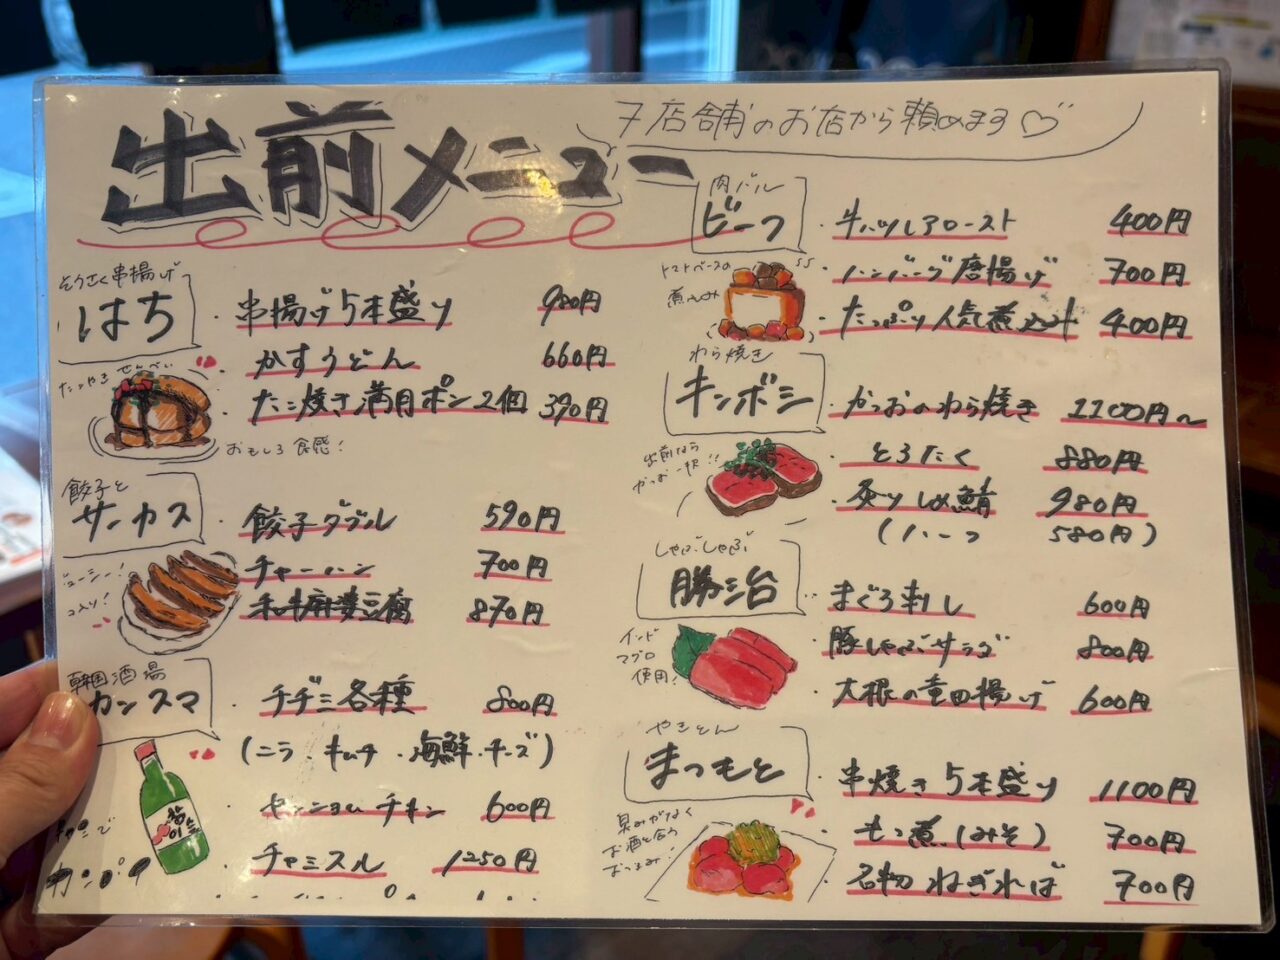 出前メニュー
7店舗のお店から頼めます♡
そうさく串揚げ
はち
・串揚げ5本盛り 980円
・かすうどん 660円
・たこ焼き満月ポン2個 390円
たこやきせんべい
おもしろ食感!
餃子と
サーカス
・餃子ダブル 590円
・チャーハン 700円
・麻婆豆腐 870円
ジューシー!
韓国酒場
カンスマ
・チヂミ各種 800円
(ニラ・キムチ・海鮮・チーズ)
・ヤンニョムチキン 600円
・チャミスル 1250円
肉バル
ビーフ
・牛ハツレアロースト 400円
・ハンバーグ唐揚げ 700円
・たっぷり人気煮込み 400円
トマトベースの
煮込み
わら焼き
キンボシ
・かつおのわら焼き 1100円〜
・とろたく 880円
・炙りしめ鯖 980円
(ハーフ 580円)
出前なら
かつお一択!!
しゃぶしゃぶ
勝治
・まぐろ刺し 600円
・豚しゃぶサラダ 800円
・大根の竜田揚げ 600円
インド
マグロ
使用!
やきとん
まつもと
・串焼き5本盛り 1100円
・もつ煮(みそ) 700円
・名物ねぎればー 700円
臭みがなく
お酒と合う
おつまみ!